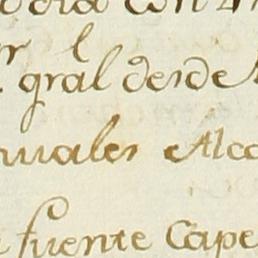 dia con
r l
. gral desde
nuales Alca
fuente Cape